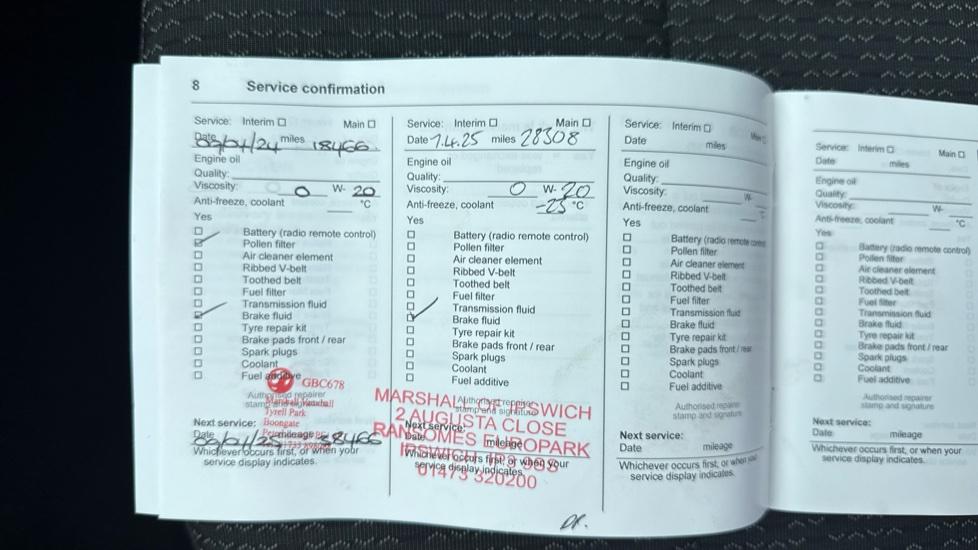 8 Service confirmation
Service: Interim ☐ Main ☐
Date 09/04/24 miles 18466
Engine oil
Quality:
Viscosity: 0 W- 20
Anti-freeze, coolant °C
Yes
Battery (radio remote control)
Pollen filter
Air cleaner element
Ribbed V-belt
Toothed belt
Fuel filter
Transmission fluid
Brake fluid
Tyre repair kit
Brake pads front / rear
Spark plugs
Coolant
Fuel additive
GBC678
Authorised repairer
stamp and signature
Marshall Vauxhall
Tyrell Park
Boongate
Next service:
Date 09/04/25 mileage 38466
Whichever occurs first, or when your
service display indicates.
Service: Interim ☐ Main ☐
Date 7.4.25 miles 28308
Engine oil
Quality:
Viscosity: 0 W- 20
Anti-freeze, coolant -25 °C
Yes
Battery (radio remote control)
Pollen filter
Air cleaner element
Ribbed V-belt
Toothed belt
Fuel filter
Transmission fluid
Brake fluid
Tyre repair kit
Brake pads front / rear
Spark plugs
Coolant
Fuel additive
Authorised repairer
stamp and signature
MARSHALL OF IPSWICH
2 AUGUSTA CLOSE
RANSOMES EUROPARK
IPSWICH IP3 9SS
01473 320200
Next service:
Date mileage
Whichever occurs first, or when your
service display indicates.
Service: Interim ☐ Main ☐
Date miles
Engine oil
Quality:
Viscosity: W-
Anti-freeze, coolant °C
Yes
Battery (radio remote control)
Pollen filter
Air cleaner element
Ribbed V-belt
Toothed belt
Fuel filter
Transmission fluid
Brake fluid
Tyre repair kit
Brake pads front / rear
Spark plugs
Coolant
Fuel additive
Authorised repairer
stamp and signature
Next service:
Date mileage
Whichever occurs first, or when your
service display indicates.
Service: Interim ☐ Main ☐
Date miles
Engine oil
Quality:
Viscosity: W-
Anti-freeze, coolant °C
Yes
Battery (radio remote control)
Pollen filter
Air cleaner element
Ribbed V-belt
Toothed belt
Fuel filter
Transmission fluid
Brake fluid
Tyre repair kit
Brake pads front / rear
Spark plugs
Coolant
Fuel additive
Authorised repairer
stamp and signature
Next service:
Date mileage
Whichever occurs first, or when your
service display indicates.